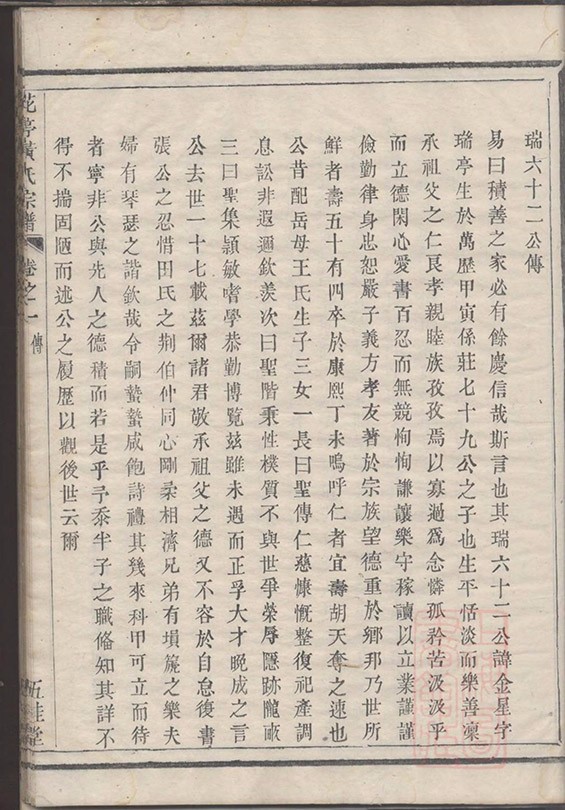 瑞六十二公傳
易曰積善之家必有餘慶信哉斯言也其瑞六十二公諱金星字
瑞亭生於萬歷甲寅係莊七十九公之子也生平恬淡而樂善凜
承祖父之仁艮孝親睦族孜孜焉以寡過爲念憐孤矜苦汲汲乎
而立德閑心愛書百忍而無競恂恂謙讓樂守稼讀以立業謹謹
儉勤律身忠恕嚴子義方孝友著於宗族望德重於鄉邦乃世所
鮮者壽五十有四卒於康熙丁未嗚呼仁者宜壽胡天奪之速也
公昔配岳母王氏生子三女一長曰聖傳仁慈慷慨整復祀產調
息訟非遐邇欽羨次曰聖階秉性樸質不與世爭榮辱隱跡隴畝
三曰聖集穎敏嗜學恭勤博覧玆雖未遇而正孚大才晚成之言
公去世一十七載茲爾諸君敬承祖父之德又不容於自怠復書
張公之忍惜田氏之荆伯仲同心剛柔相濟兄弟有塤篪之樂夫
婦有琴瑟之諧欽哉令嗣蟄蟄咸飽詩禮其幾來科甲可立而待
者寧非公與先人之德積而若是乎予忝半子之職俻知其詳不
得不揣固陋而述公之履歷以觀後世云爾
花亭黄氏宗譜
卷之一
傳
五桂堂